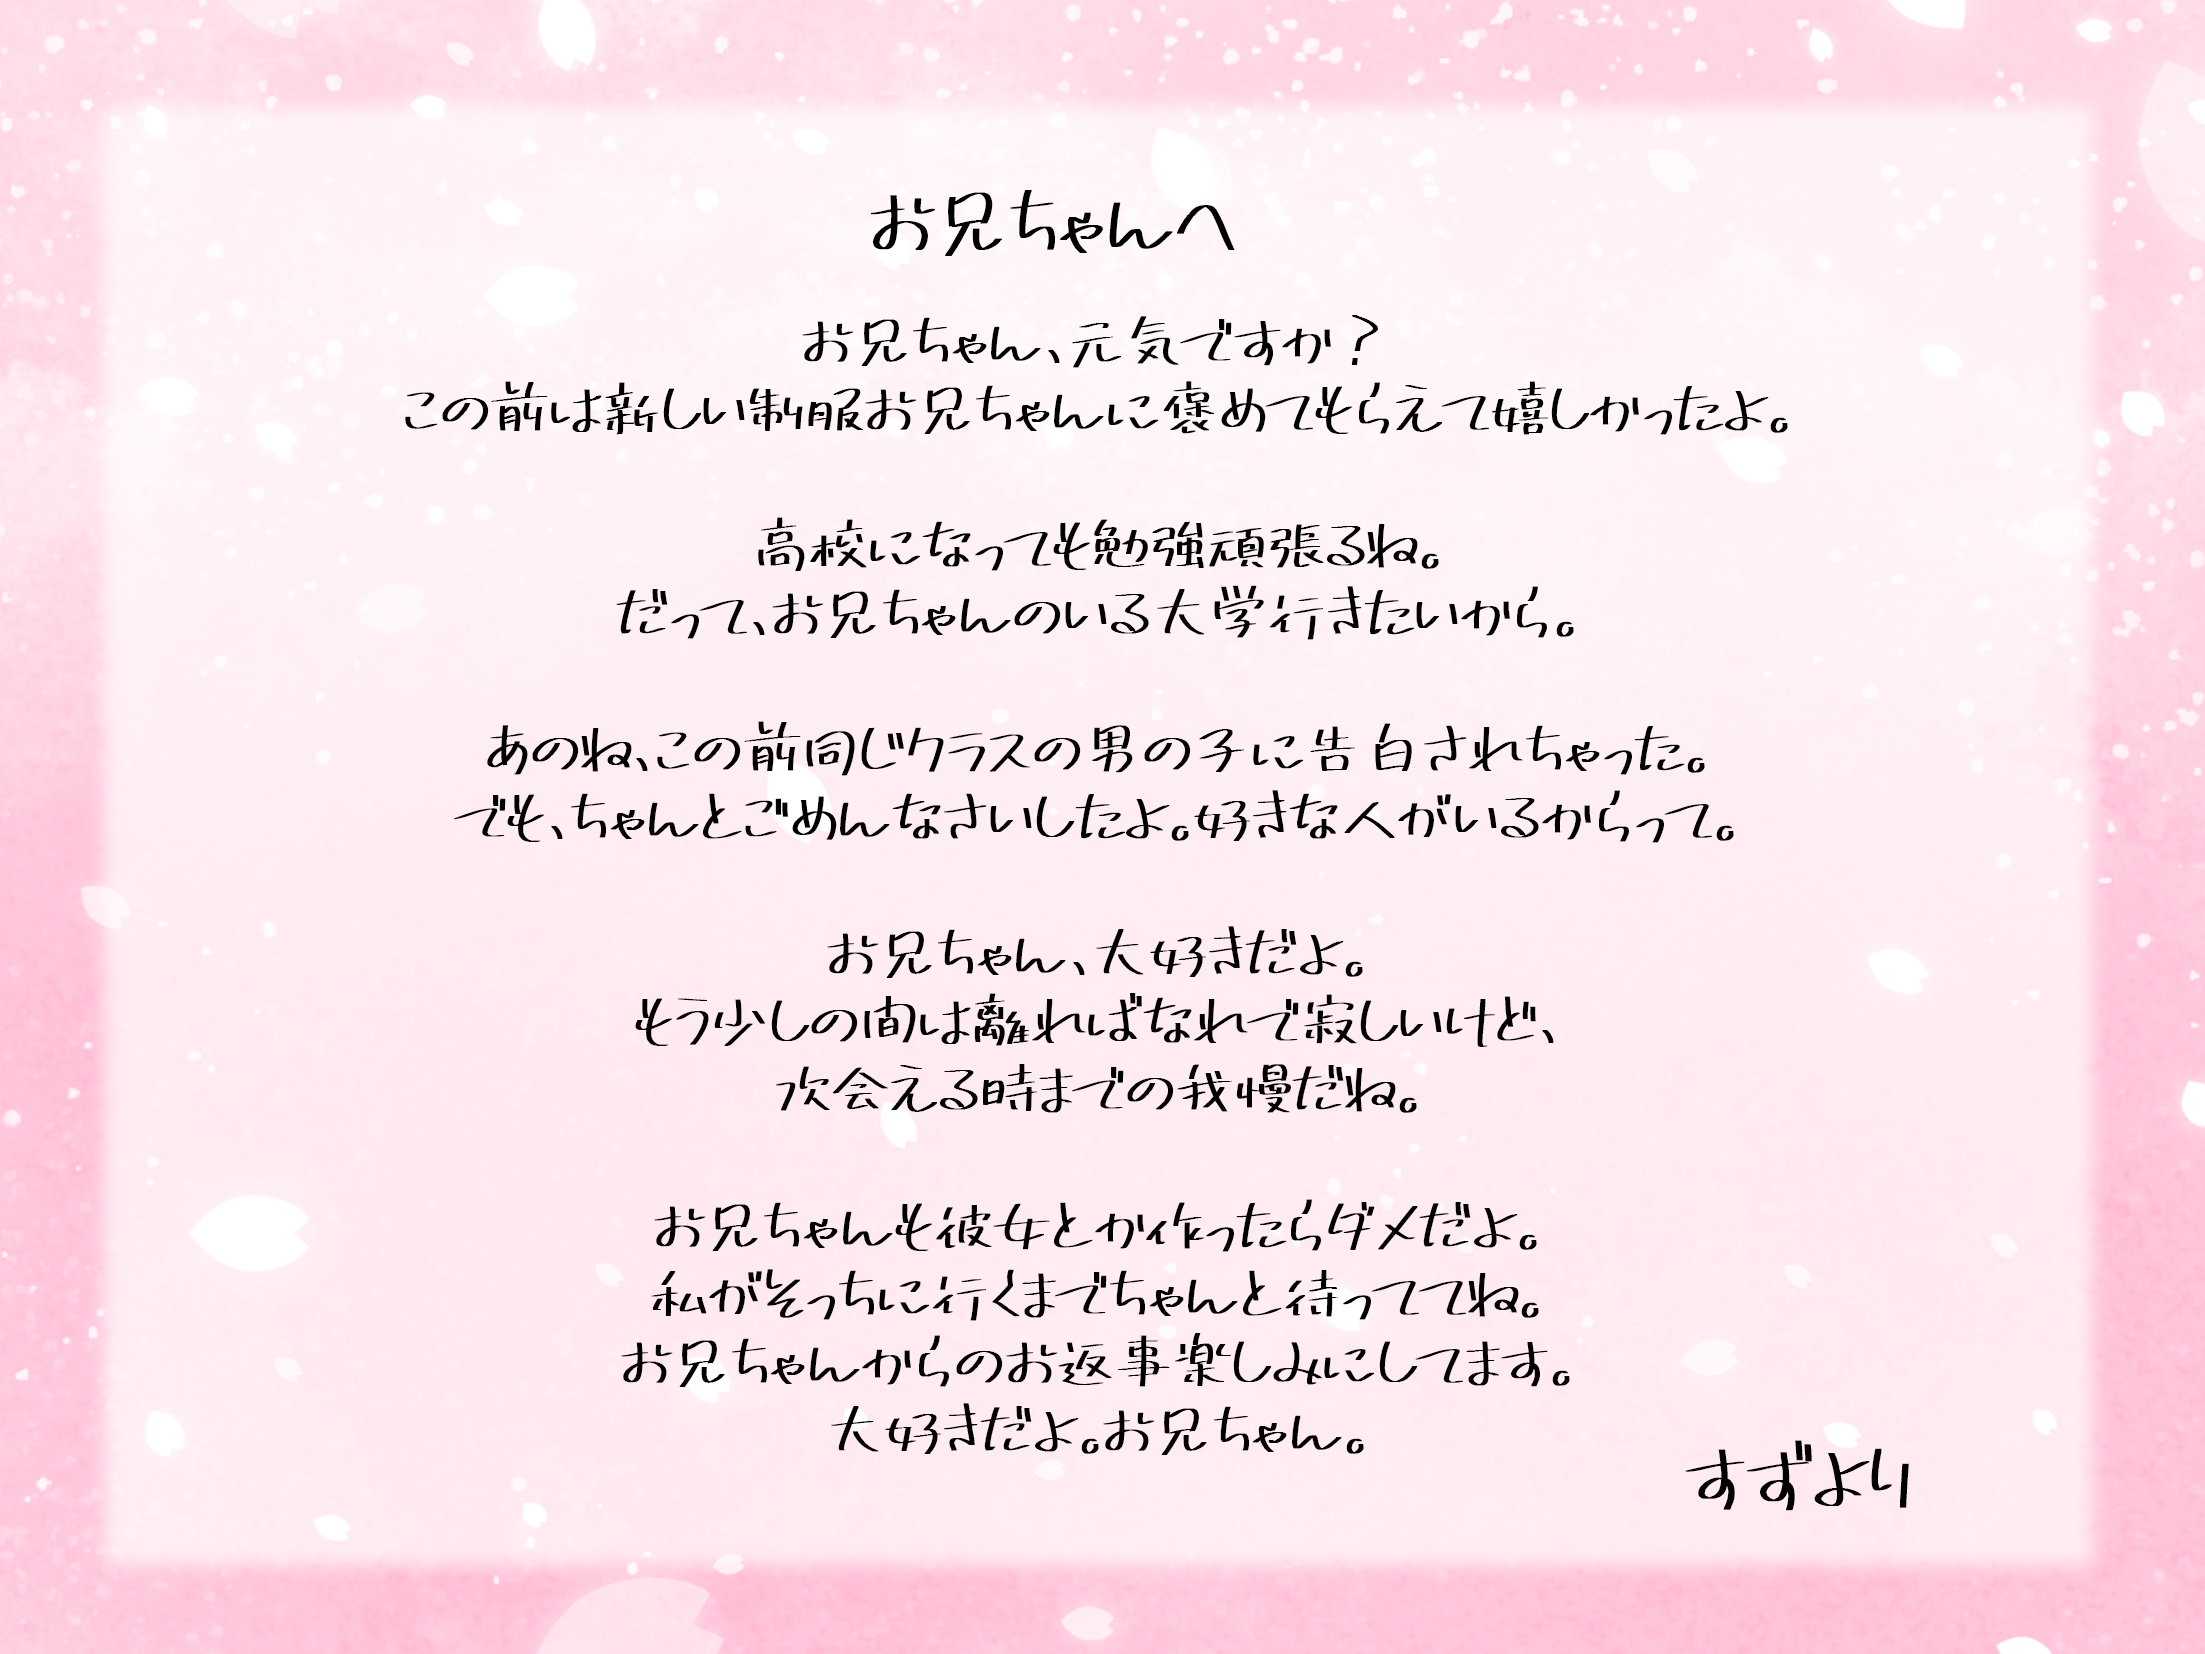 お兄ちゃんへ
お兄ちゃん、元気ですか？
この前は新しい制服お兄ちゃんに褒めてもらえて嬉しかったよ。
高校になっても勉強頑張るね。
だって、お兄ちゃんのいる大学行きたいから。
あのね、この前同じクラスの男の子に告白されちゃった。
でも、ちゃんとごめんなさいしたよ。好きな人がいるからって。
お兄ちゃん、大好きだよ。
もう少しの間は離ればなれで寂しいけど、
次会える時までの我慢だね。
お兄ちゃんも彼女とか作ったらダメだよ。
私がそっちに行くまでちゃんと待っててね。
お兄ちゃんからのお返事楽しみにしてます。
大好きだよ。お兄ちゃん。
すずより